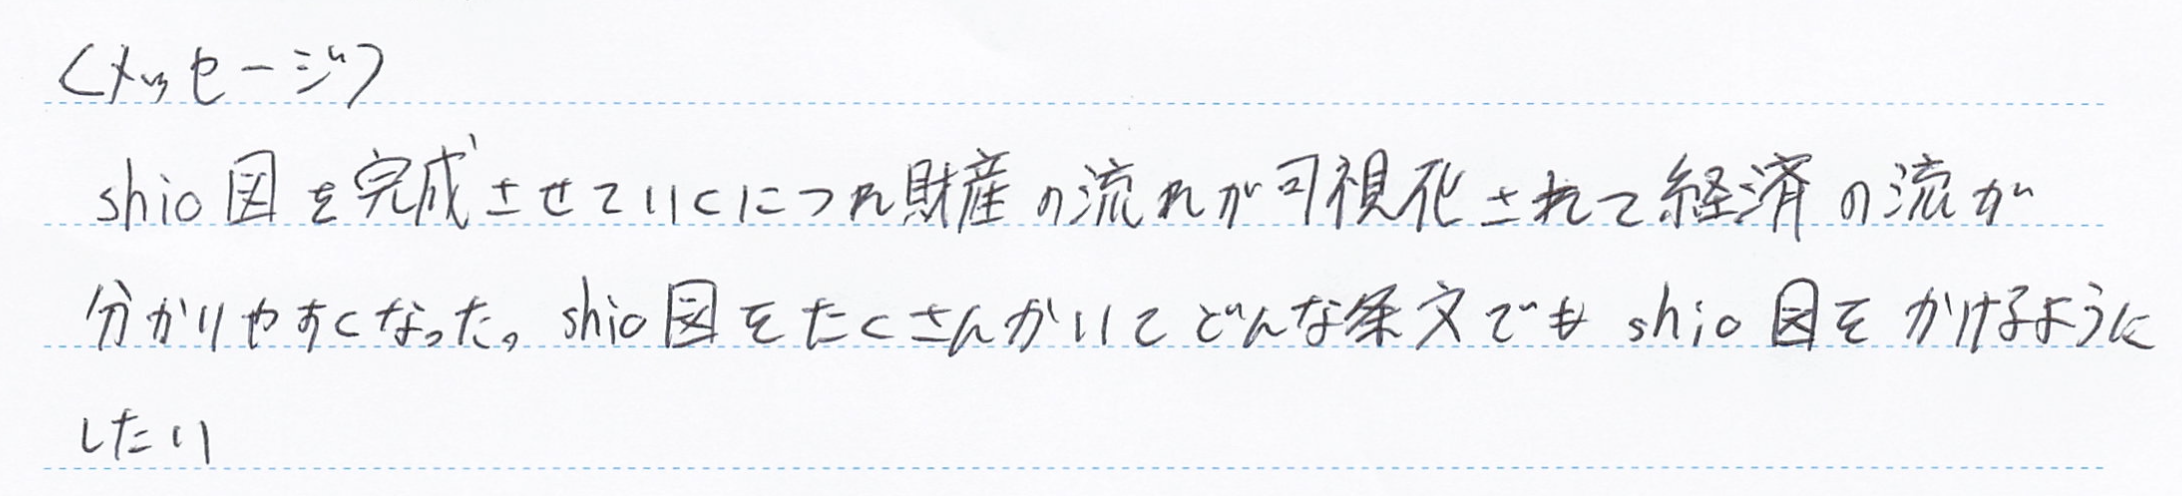 〈メッセージ〉
shio図を完成させていくにつれ財産の流れが可視化されて経済の流が
分かりやすくなった。shio図をたくさんかいてどんな条文でもshio図をかけるように
したい